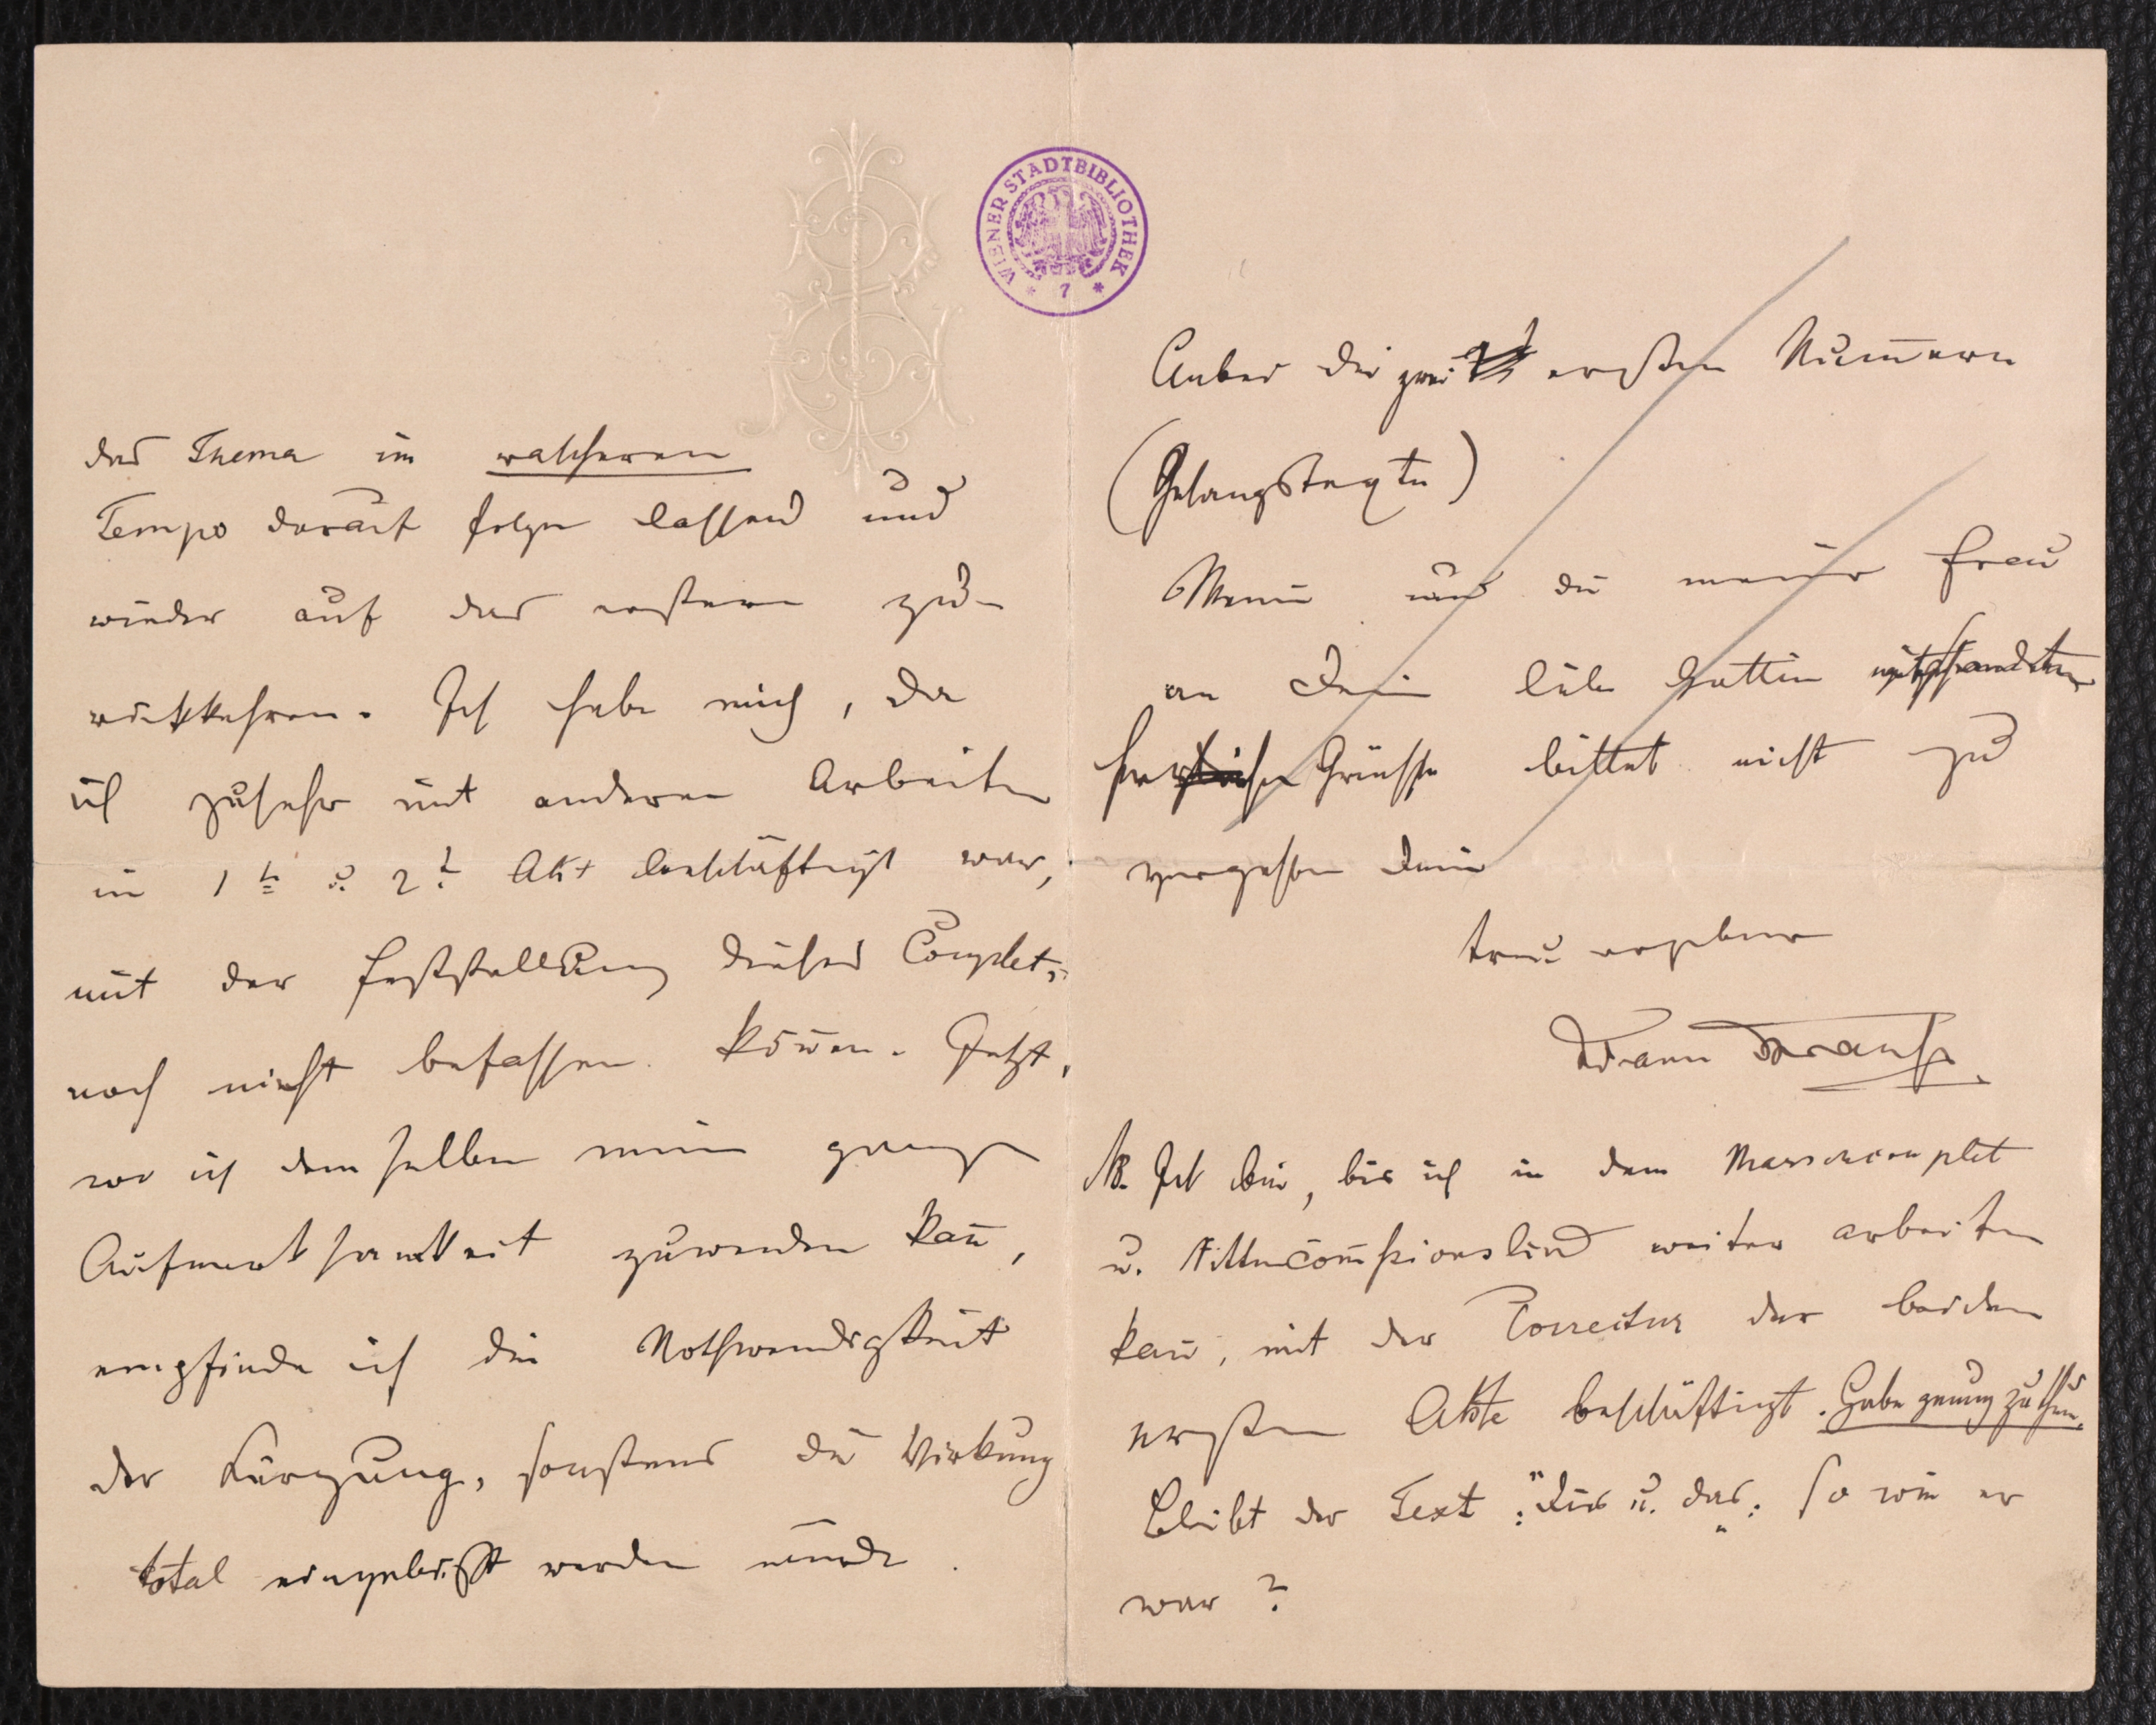 WIENER STADTBIBLIOTHEK
* 7 *
das Thema im rascheren
Tempo darauf folgen lassend und
wieder auf das erstere zu-
rückkehren. Ich habe mich, da
ich zusehr mit anderen Arbeiten
im 1t u. 2t Akt beschäftigt war,
mit der Feststellung dieses Couplets
noch nicht befassen können. Jetzt,
wo ich demselben meine ganze
Aufmerksamkeit zuwenden kann,
empfinde ich die Nothwendigkeit
der Kürzung, sonstens die Wirkung
total eingebüsst werden würde.
Anbei die zwei ersten Nummern
(Gesangstexte)
Meine und die meiner Frau
an Deine liebe Gattin
herzlichen Grüsse bittet nicht zu
vergessen Dein
treu ergebener
Johann Strauss
NB. Ich bin, bis ich in dem
u. weiter arbeiten
kann, mit der Correctur der beiden
ersten Akte beschäftigt. Habe genug zu thun.
Bleibt der Text: "Dies u. das": so wie er
war?